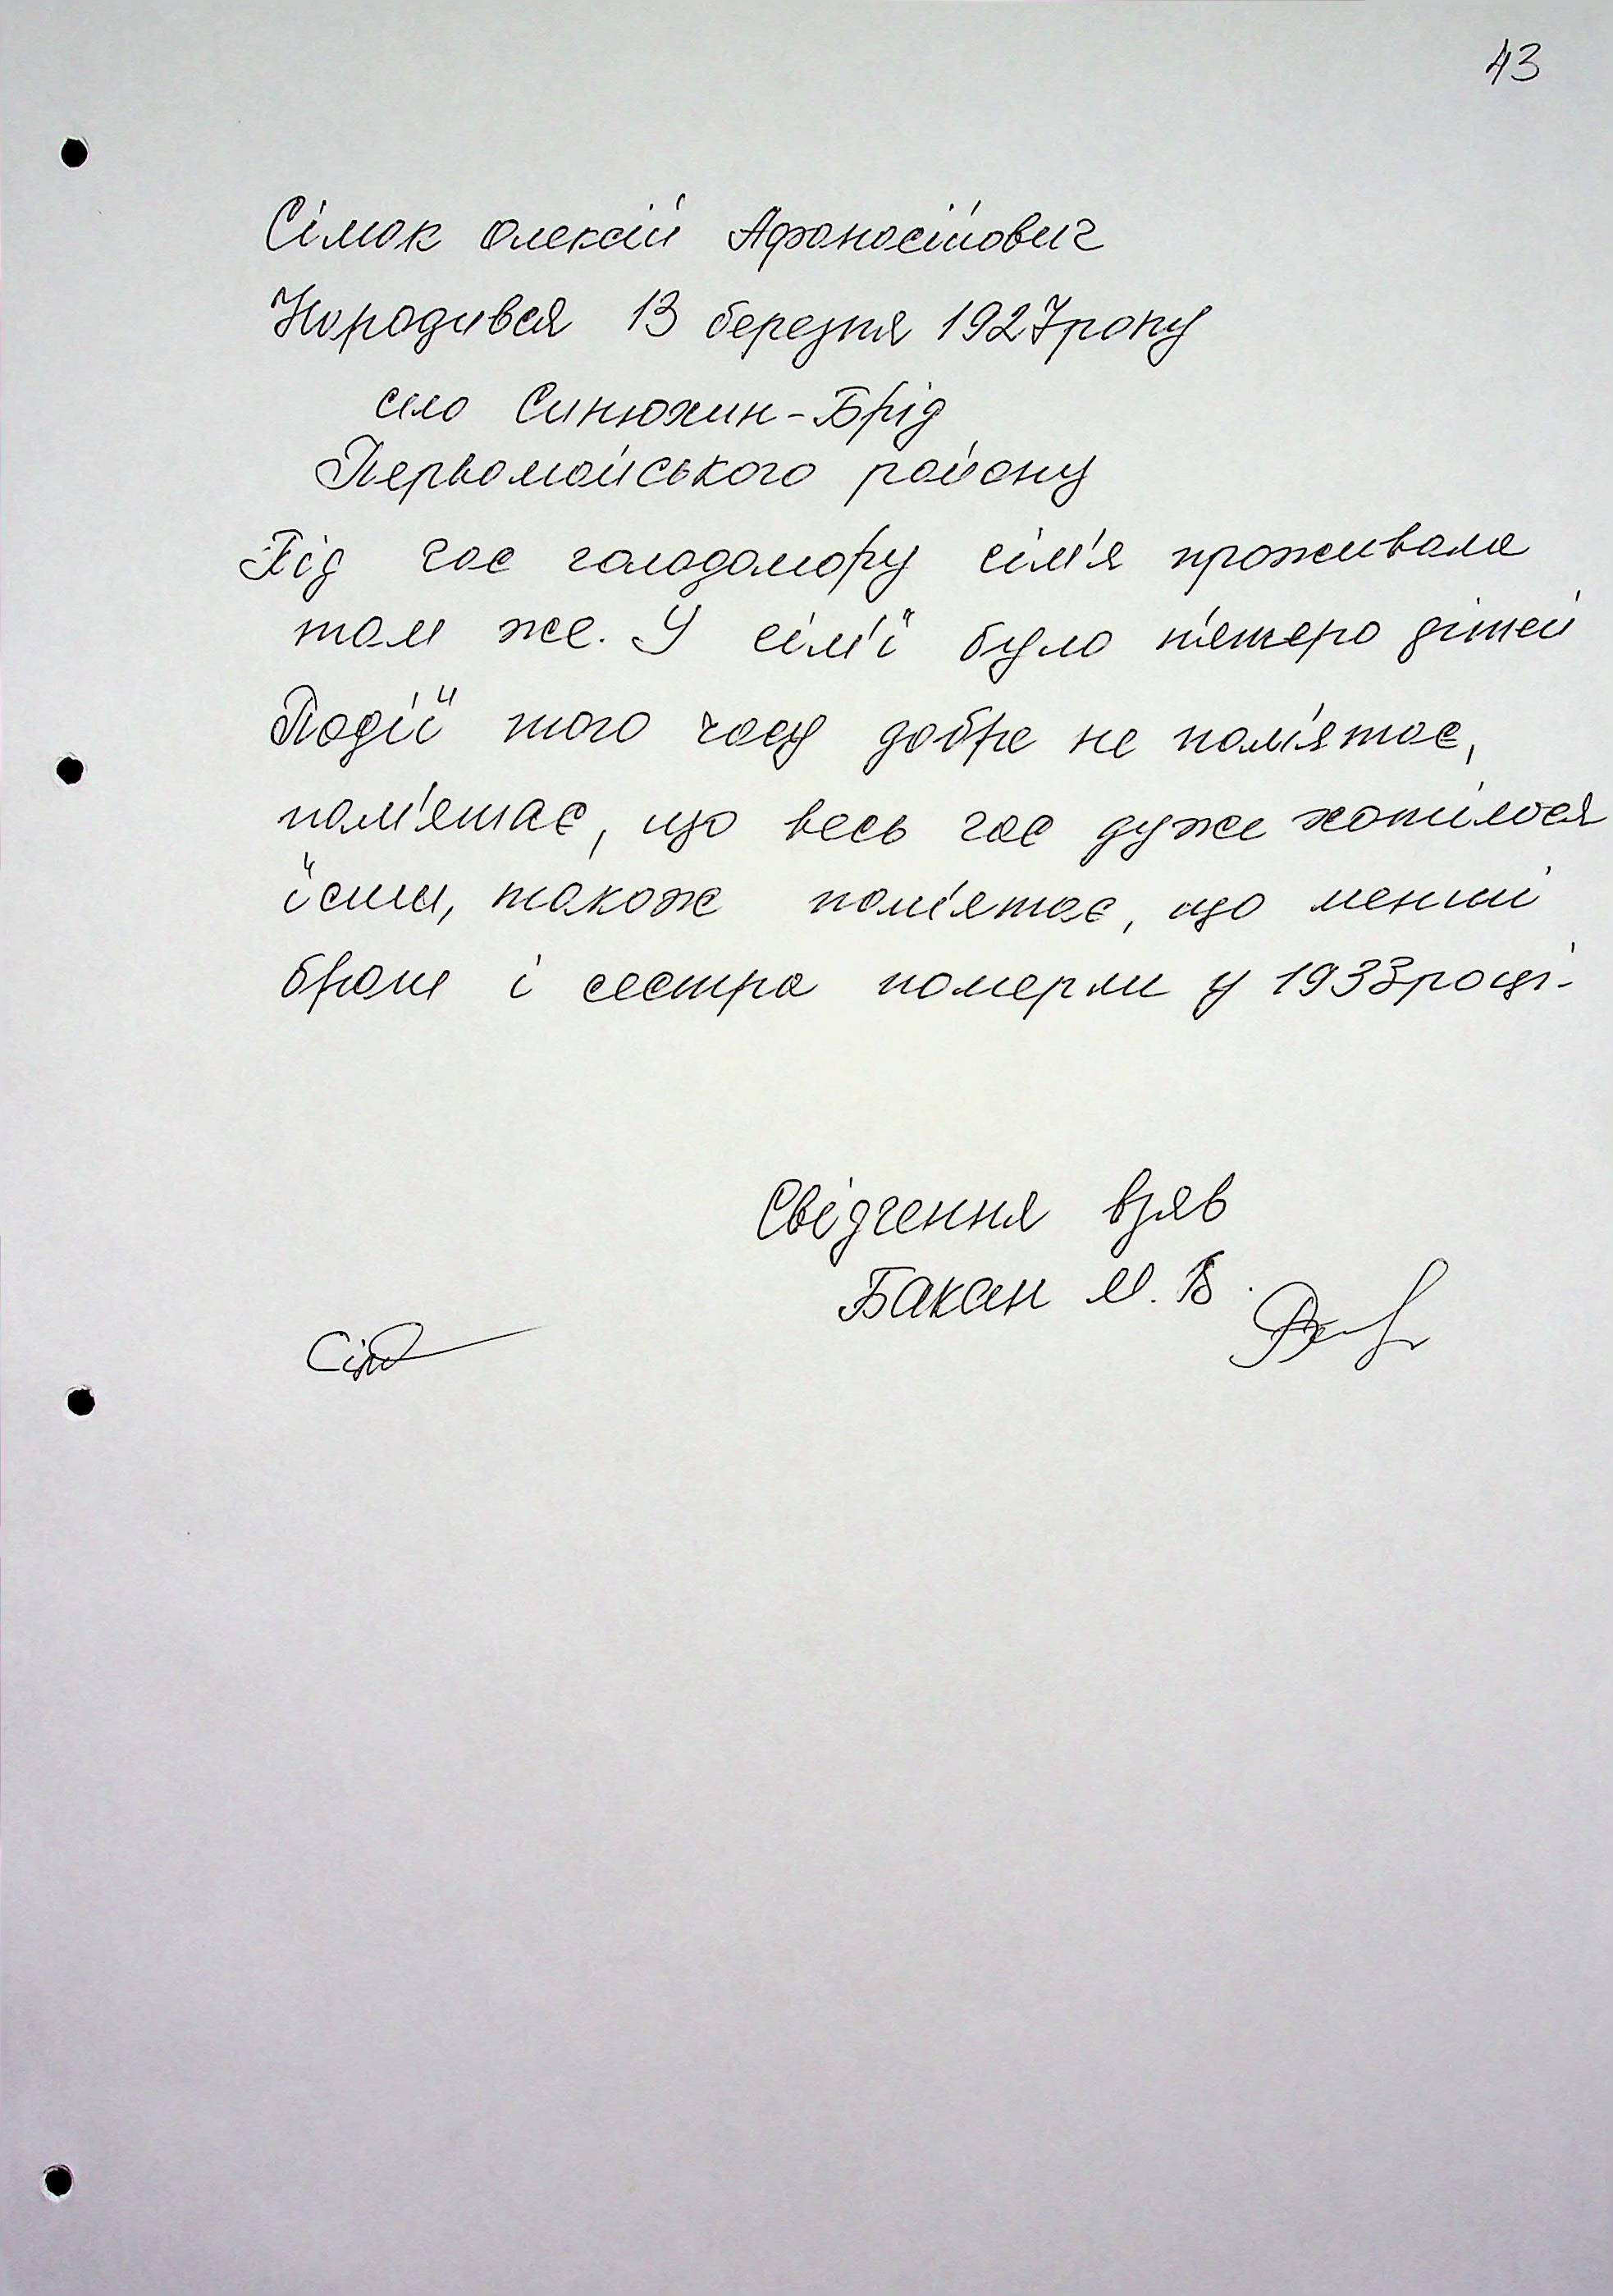 43
Сімак Олексій Афанасійович
Народився 13 березня 1927 року
село Синюхин-Брід
Первомайського району
Під час голодомору сім'я проживала
там же. У сім'ї було п'ятеро дітей
Події того часу добре не пам'ятає,
пам'ятає, що весь час дуже хотілося
їсти, також пам'ятає, що менші
брат і сестра померли у 1933 році.
Свідчення взяв
Бакан М. В.